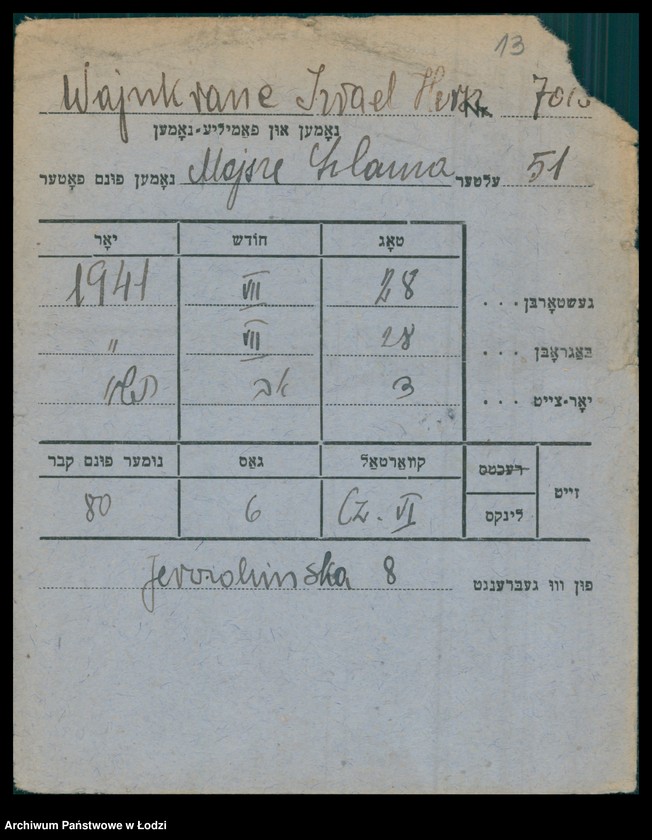 13
Wajnkranc Izrael Hersz Nr.
נאָמען און פאַמיליע-נאָמען
נאָמען פונם פאָטער Mojsze Szlama עלטער 51
יאָר חודש טאָג
1941 VII 28 געשטאָרבן . . .
" VII 28 באַגראָבן . . .
אב ד יאָר-צייט . . .
נומער פונם קבר גאַס קוואַרטאַל רעכטס זייט
80 6 Cz. VI לינקס
Jerozolimska 8 פון וווּ געברענגט
Archiwum Państwowe w Łodzi